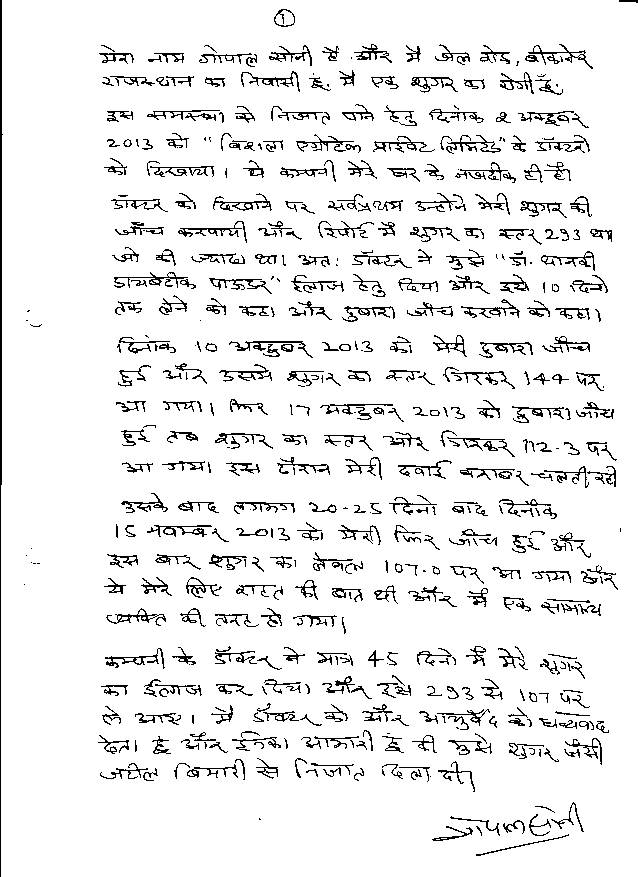 1
मेरा नाम गोपाल सोनी है और मैं जेल रोड, बीकानेर
राजस्थान का निवासी हूं. मैं एक शुगर का रोगी हूँ.
इस समस्या से निजात पाने हेतु दिनांक 2 अक्टूबर
2013 को "विशला एग्रोटेक प्राईवेट लिमिटेड" के डॉक्टरो
को दिखाया। ये कम्पनी मेरे घर के नजदीक ही है।
डॉक्टर को दिखाने पर सर्वप्रथम उन्होने मेरी शुगर की
जाँच करवायी और रिपोर्ट में शुगर का स्तर 293 था
जो की ज्यादा था। अतः डॉक्टर ने मुझे "डॉ. थानवी
डायबेटीक पाऊडर" ईलाज हेतु दिया और इसे 10 दिनो
तक लेने को कहा और दुबारा जाँच करवाने को कहा।
दिनांक 10 अक्टुबर 2013 को मेरी दुबारा जाँच
हुई और उसमे शुगर का स्तर गिरकर 144 पर
आ गया। फिर 17 अक्टुबर 2013 को दुबारा जाँच
हुई तब शुगर का स्तर और गिरकर 112.3 पर
आ गया। इस दौरान मेरी दवाई बराबर चलती रही
उसके बाद लगभग 20-25 दिनो बाद दिनाँक
15 नवम्बर 2013 को मेरी फिर जाँच हुई और
इस बार शुगर का लेवल 107.0 पर आ गया और
ये मेरे लिए राहत की बात थी और मैं एक सामान्य
व्यक्ति की तरह हो गया।
कम्पनी के डॉक्टर ने मात्र 45 दिनो में मेरे शुगर
का ईलाज कर दिया और इसे 293 से 107 पर
ले आए। मैं डॉक्टर को और आयुर्वेद को धन्यवाद
देता हूं और ईनका आभारी हूं की मुझे शुगर जैसी
जटील बिमारी से निजात दिला दी।
गोपाल सोनी